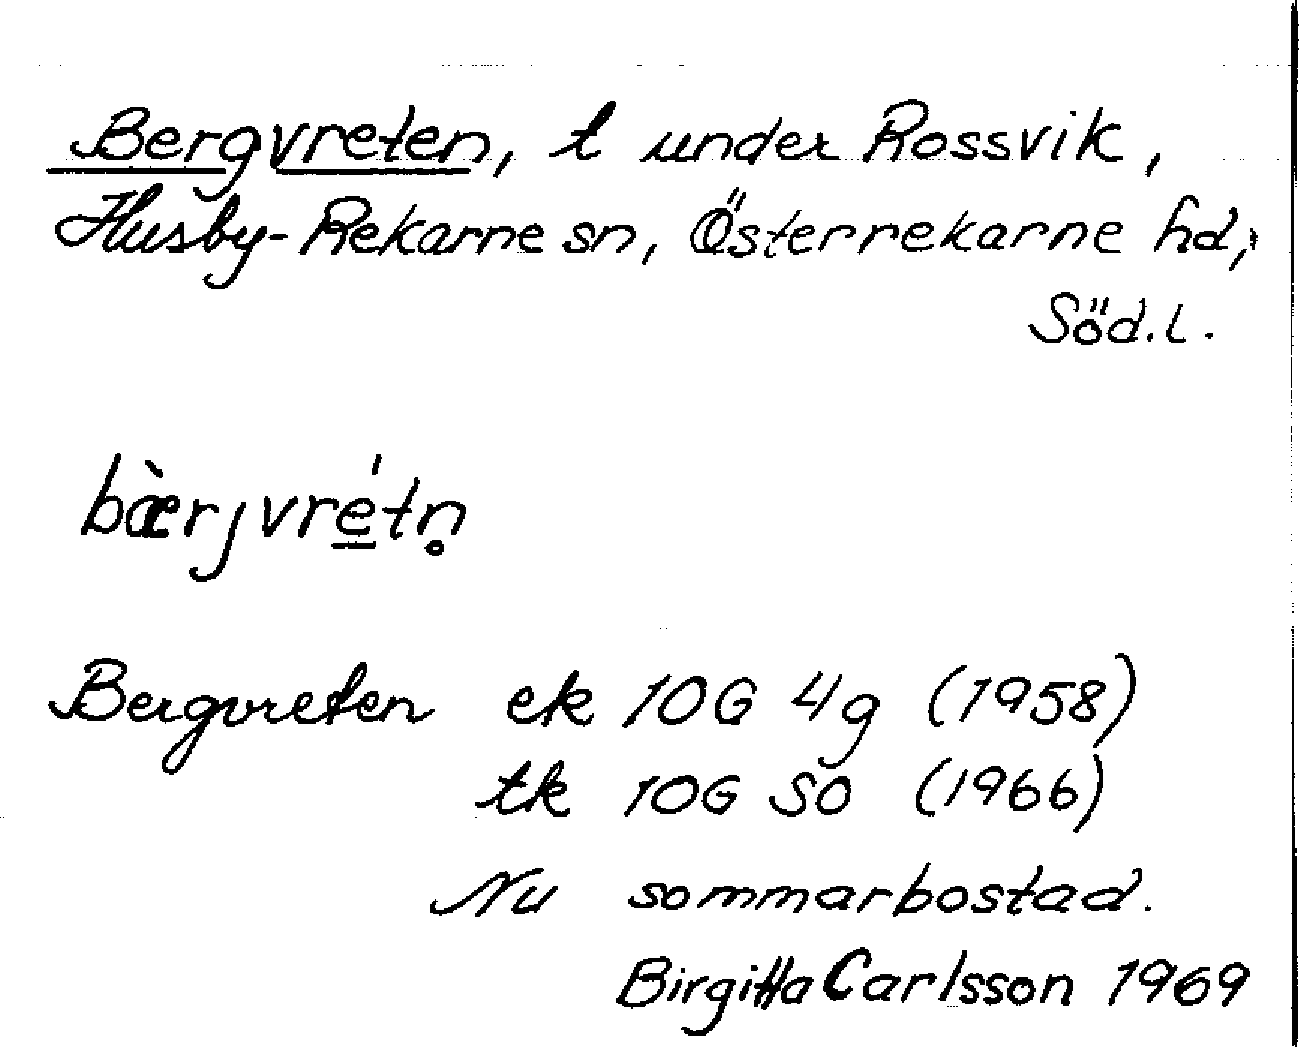 Bergvreten, t under Rossvik,
Husby-Rekarne sn, Österrekarne hd,
Söd.l.
bæ̀rjvré̲tn̥
Bergvreten ek 10G 4g (1958)
tk 10G SO (1966)
Nu sommarbostad.
Birgitta Carlsson 1969